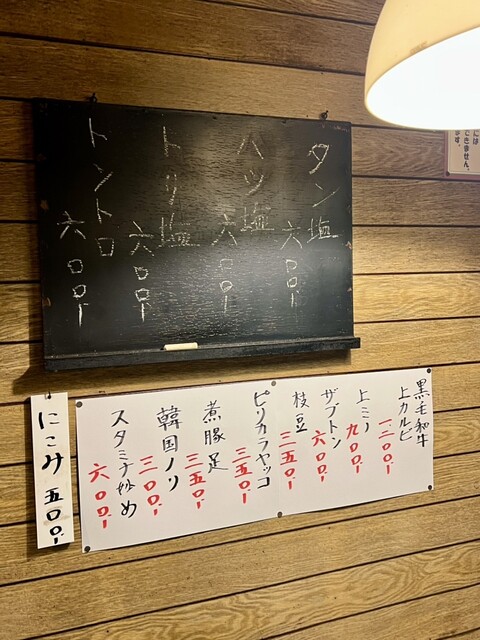 タン塩 六〇〇円
ハツ塩 六〇〇円
トリ塩 六〇〇円
トントロ 六〇〇円
黒毛和牛
上カルビ 一二〇〇円
上ミノ 九〇〇円
ザブトン 六〇〇円
枝豆 三五〇円
ピリカラヤッコ 三五〇円
煮豚足 三五〇円
韓国ノリ 三〇〇円
スタミナ炒め 六〇〇円
にこみ 五〇〇円